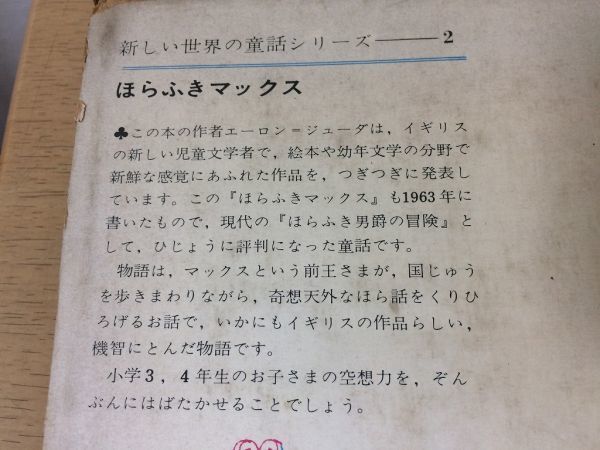 新しい世界の童話シリーズ――2
ほらふきマックス
♣この本の作者エーロン＝ジューダは，イギリス
の新しい児童文学者で，絵本や幼年文学の分野で
新鮮な感覚にあふれた作品を，つぎつぎに発表し
ています。この『ほらふきマックス』も1963年に
書いたもので，現代の『ほらふき男爵の冒険』と
して，ひじょうに評判になった童話です。
物語は，マックスという前王さまが，国じゅう
を歩きまわりながら，奇想天外なほら話をくりひ
ろげるお話で，いかにもイギリスの作品らしい，
機智にとんだ物語です。
小学3，4年生のお子さまの空想力を，ぞん
ぶんにはばたかせることでしょう。